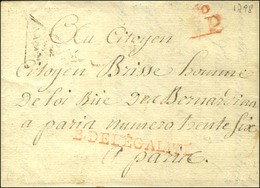 1798
P
Au Citoyen
Citoyen Brisse homme
de loi Rüe des Bernardins
a paris numero trente six
B. DE L'ÉGALITÉ
a paris